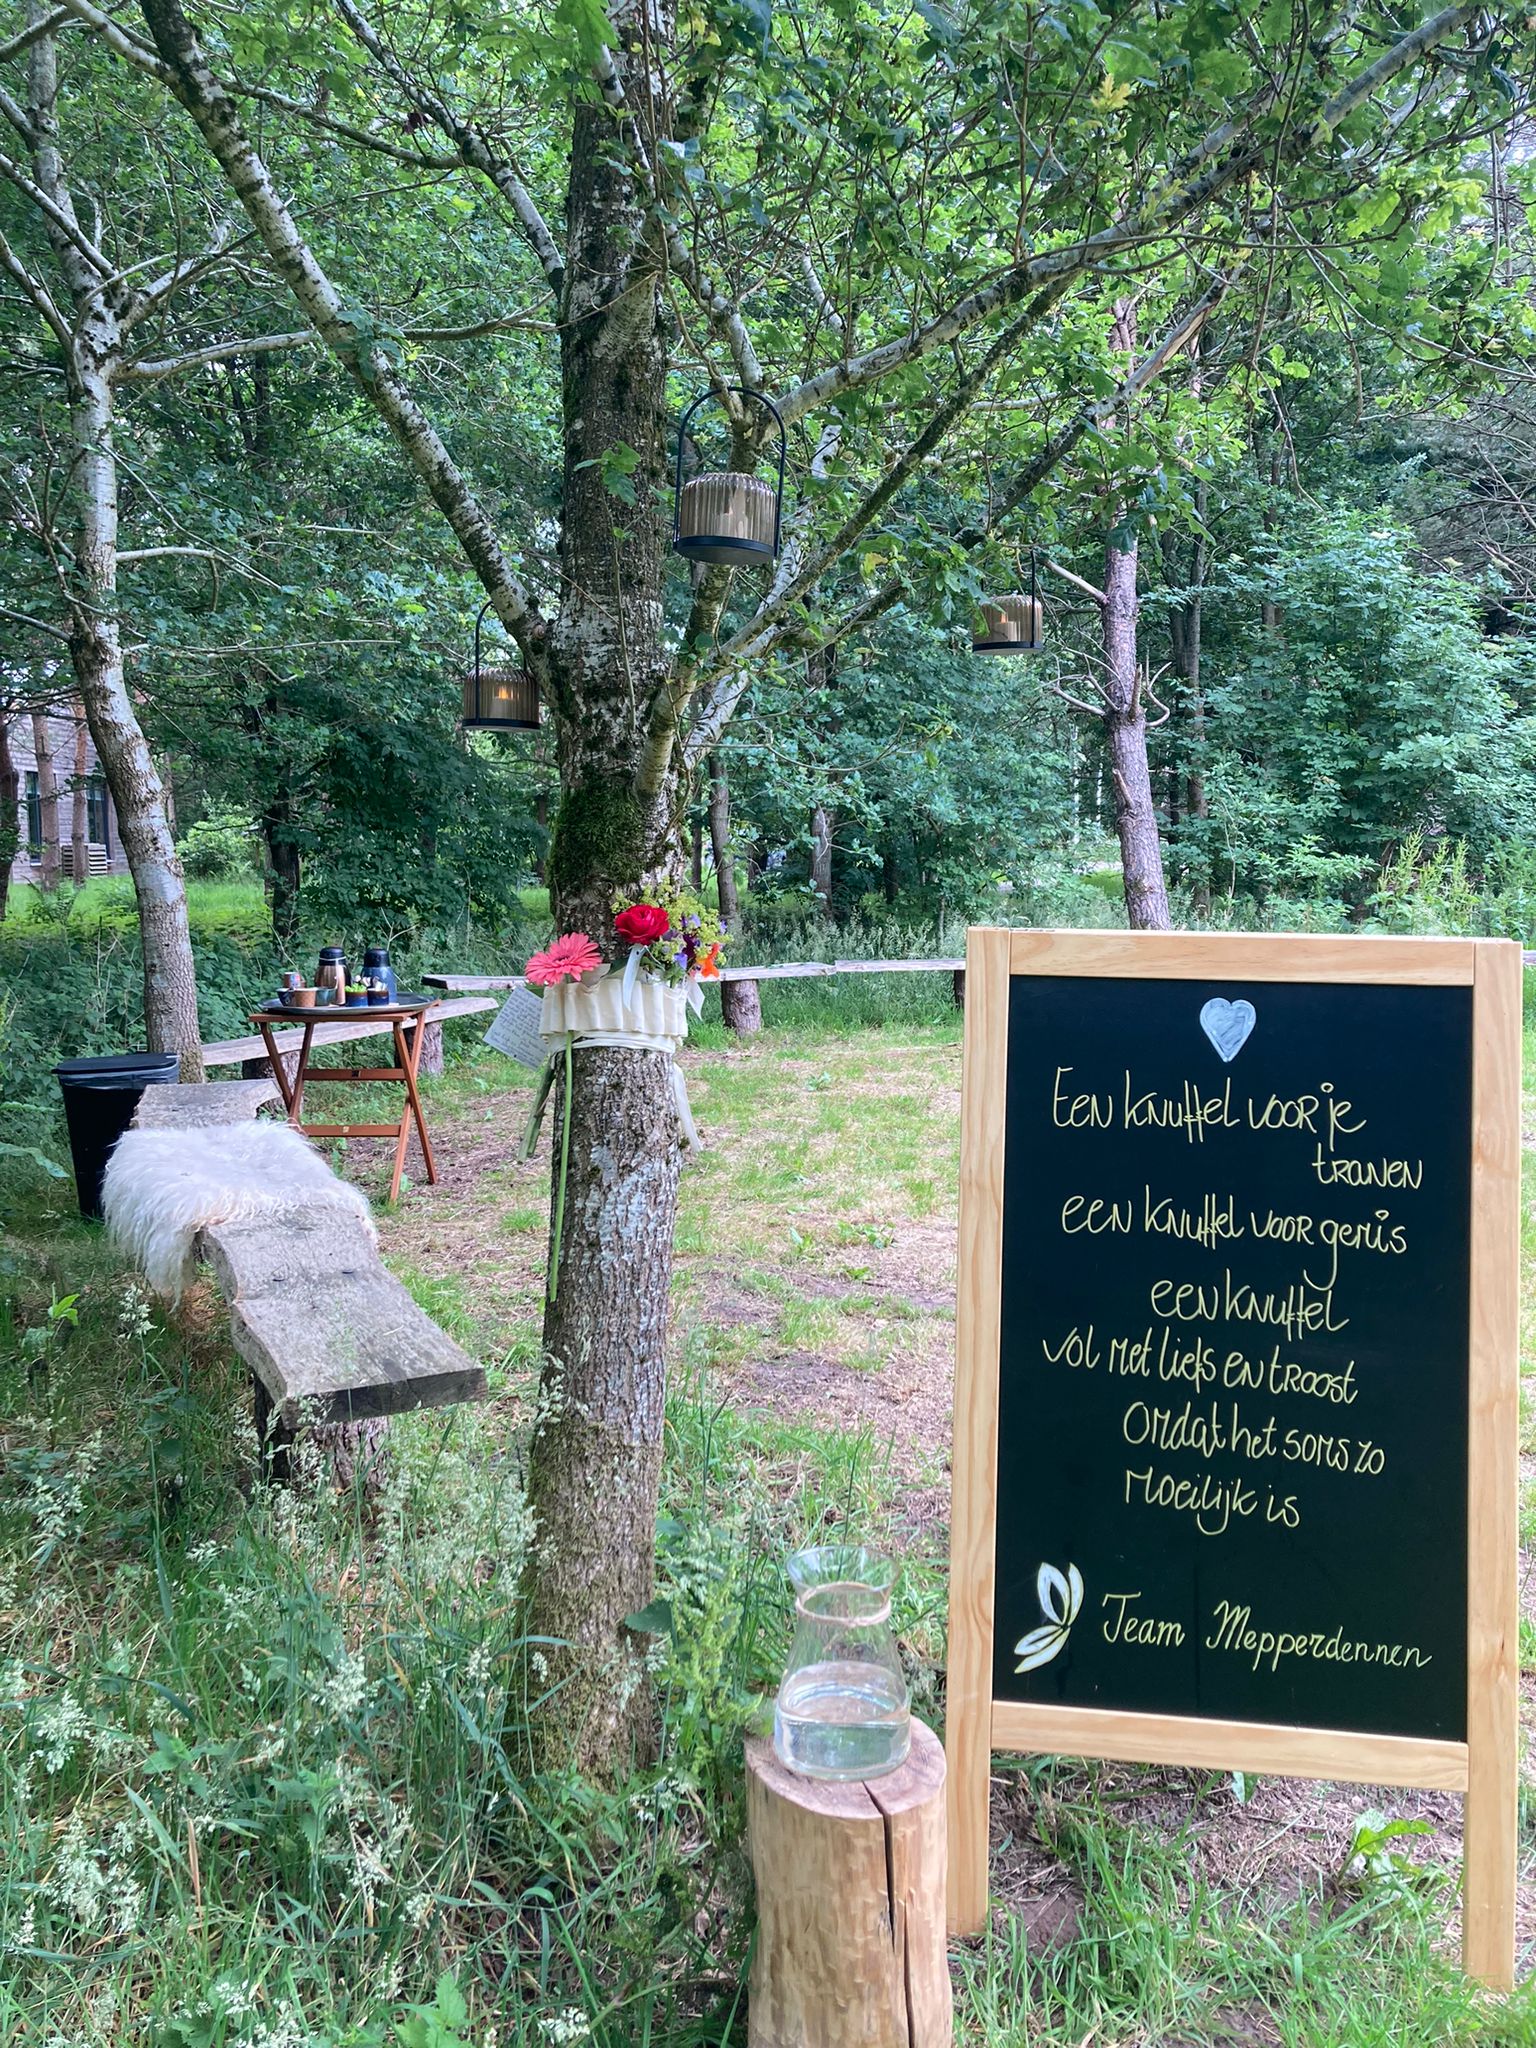 Een knuffel voor je
tranen
een knuffel voor gemis
een knuffel
vol met liefs en troost
Omdat het soms zo
moeilijk is
Team Mepperdennen